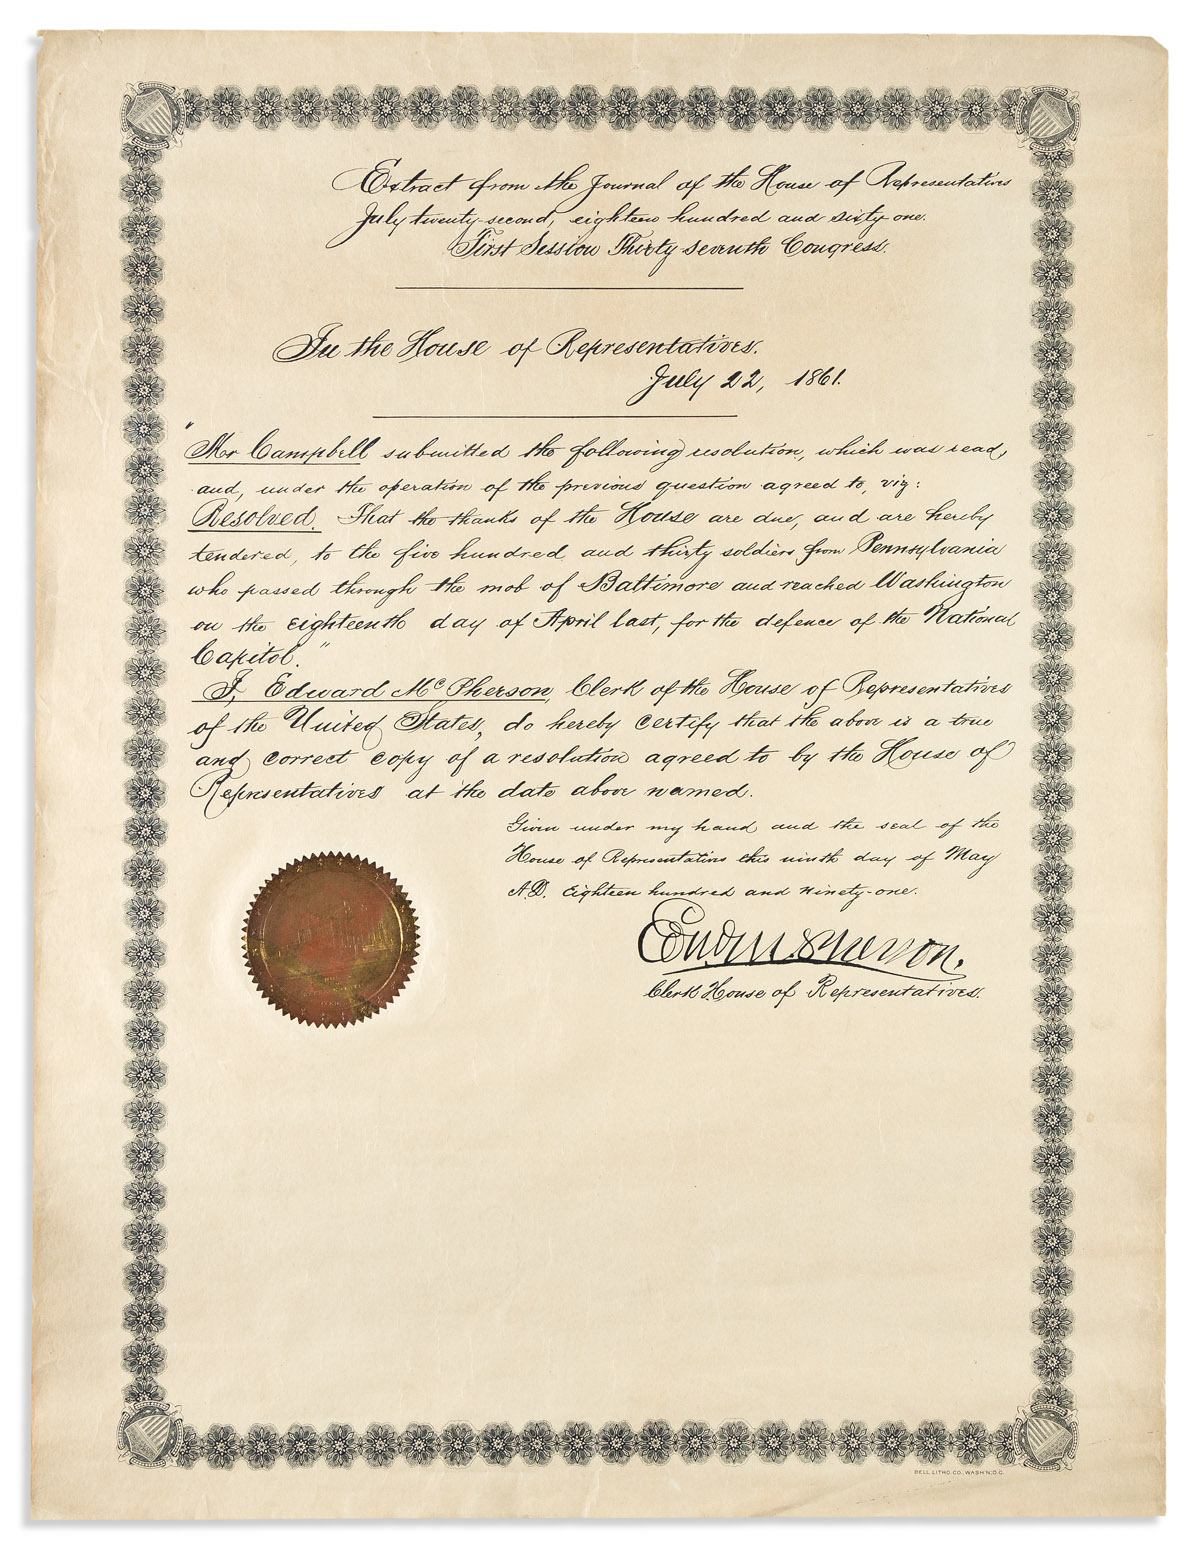 Extract from the Journal of the House of Representatives
July twenty-second, eighteen hundred and sixty-one.
First Session Thirty seventh Congress.
In the House of Representatives.
July 22, 1861.
"Mr Campbell submitted the following resolution, which was read,
and, under the operation of the previous question agreed to, viz:
Resolved. That the thanks of the House are due, and are hereby
tendered, to the five hundred and thirty soldiers from Pennsylvania
who passed through the mob of Baltimore and reached Washington
on the eighteenth day of April last, for the defence of the National
Capitol."
I, Edward McPherson, Clerk of the House of Representatives
of the United States, do hereby certify that the above is a true
and correct copy of a resolution agreed to by the House of
Representatives at the date above named.
Given under my hand and the seal of the
House of Representatives this ninth day of May
A.D. Eighteen hundred and ninety-one.
Edw McPherson.
Clerk House of Representatives.
BELL LITHO. CO., WASH'N. D.C.